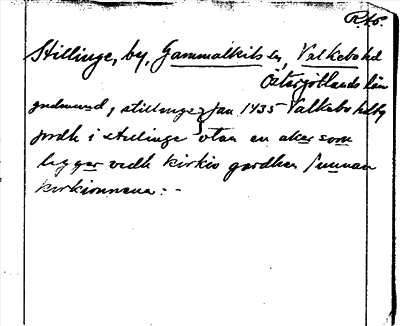 Stillinge, by, Gammalkils sn, Valkebo hd
Östergötlands län
gudmund j stillinge 7 Jan 1435 Valkebo hdby
jordh i stillinge vtan en aker som
liggar vedh kirkio gardhen sunnan
kirkionnena: -